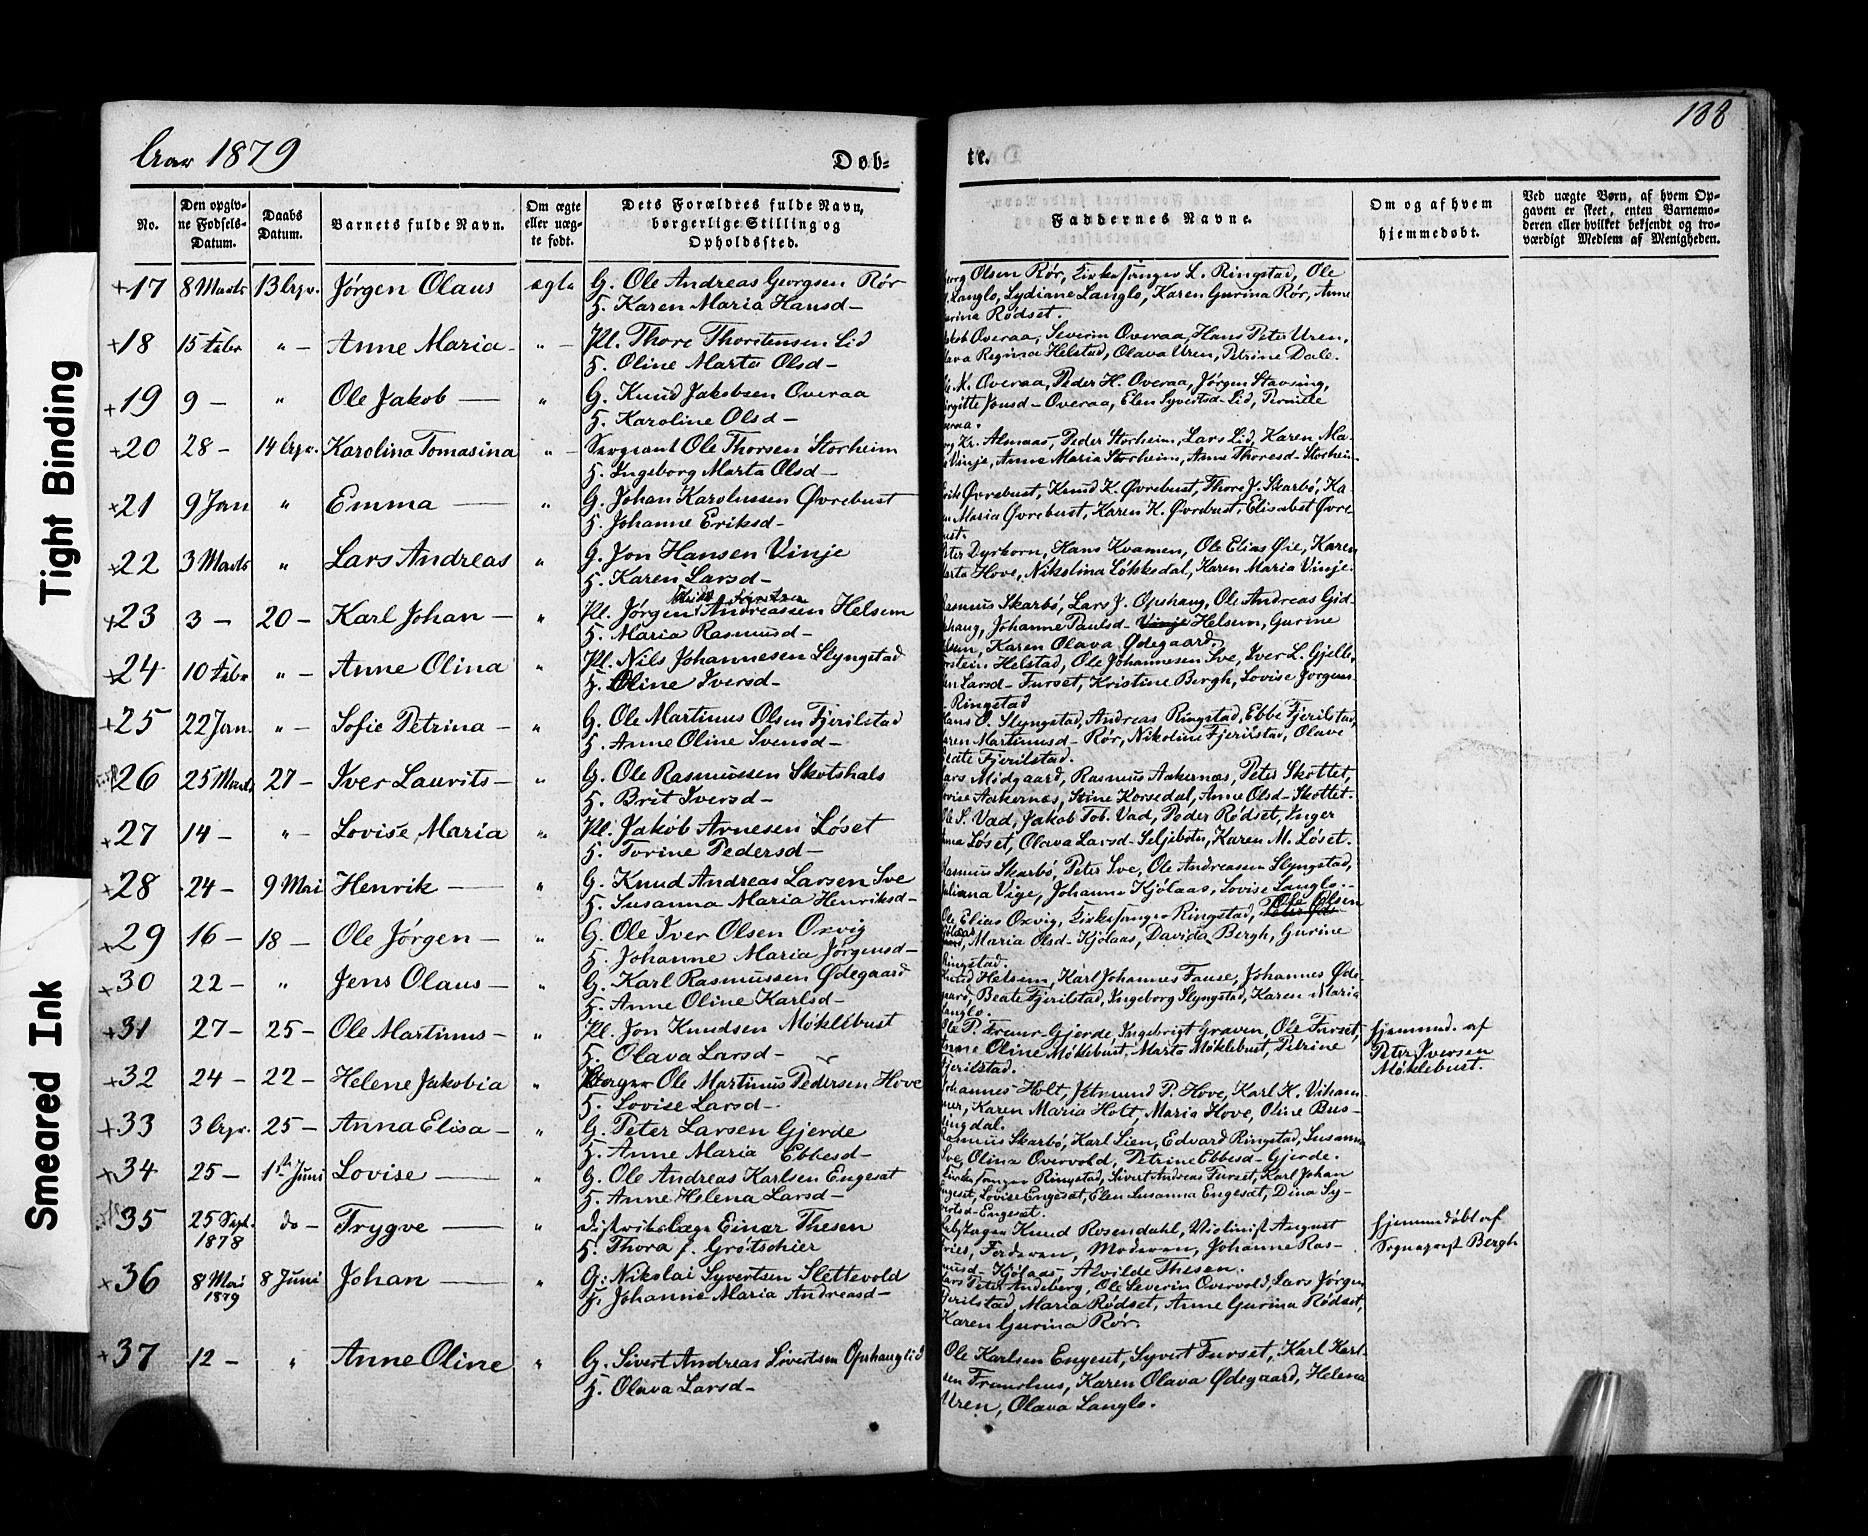 Aar 1879
Døb-
te.
188
Tight Binding
Smeared Ink
No.
Den opgiv-
ne Fødsels-
Datum.
Daabs
Datum.
Barnets fulde Navn.
Om ægte
eller uæg-
te født.
Dets Forældres fulde Navn,
borgerlige Stilling og
Opholdssted.
Faddernes Navne.
Om og af hvem
hjemmedøbt.
Ved uægte Børn, af hvem Op-
gaven er skeet, enten Barnemo-
deren eller hvilket bekjendt og tro-
værdigt Medlem af Menigheden.
+17 8 Marts 13 Apr. Jørgen Olaus ægte G. Ole Andreas Georgsen Rør
H. Karen Maria Hansd-
Olsen Rør, Kirkesanger L. Ringstad, Ole
Langlo, Lydiane Langlo, Karen Gurina Rør, Anne
Rødset.
+18 15 Febr " - Anne Maria - " - Pl. Thore Thorstensen Lid
H. Oline Marta Olsd-
Overaa, Severin Overaa, Hans Peter Uren,
Regina Helstad, Olava Uren, Petrine Dale.
+19 9 - " Ole Jakob - " G. Knud Jakobsen Overaa
H. Karoline Olsd-
K. Overaa, Peder H. Overaa, Jørgen Stavseng,
Jonsd- Overaa, Elen Syvertsd- Lid, Pernille
+20 28 - 14 Apr. Karolina Tomasina " - Sergeant Ole Thorsen Storheim
H. Ingeborg Marta Olsd-
Kr. Almaas, Peder Storheim, Lars Lid, Karen Ma-
Vinje, Anne Maria Storheim, Anne Thoresd- Storheim
+21 9 Jan " Emma - " G. Johan Karolussen Øvrebust
H. Johanne Eriksd-
Øvrebust, Knud K. Øvrebust, Thore J. Skarbø, Ka-
Maria Øvrebust, Karen K. Øvrebust, Elisabet Øvre-
+22 3 Marts " Lars Andreas " G. Jon Hansen Vinje
H. Karen Larsd-
Dyrkorn, Hans Kvamen, Ole Elias Øie, Karen
Marta Hove, Nikolina Løkkedal, Karen Maria Vinje.
+23 3 - 20 - Karl Johan - " Pl. Jørgen Andreassen Helsem
H. Maria Rasmusd-
Rasmus Skarbø, Lars J. Opshaug, Ole Andreas Gid-
Johanne Paulsd- Vinje Helsem, Gurine
Karen Olava Ødegaard.
+24 10 Febr " - Anne Olina " Pl. Nils Johannesen Slyngstad
H. Oline Iversd-
Helstad, Ole Johannesen Sve, Iver L. Gjelle,
Larsd- Furset, Kristine Bergh, Lovise Jørgens
Ringstad
+25 22 Jan. " - Sofie Petrina - " G. Ole Martinus Olsen Fjerilstad
H. Anne Oline Svensd-
Hans O. Slyngstad, Andreas Ringstad, Ebbe Fjerilstad,
Karen Martinusd- Rør, Nikoline Fjerilstad, Olave
Beate Fjerilstad.
26 25 Marts 27 - Iver Laurits - " G. Ole Rasmussen Skotshals
H. Brit Iversd-
Lars Midgaard, Rasmus Aakernæs, Peter Skottet,
Aakernæs, Stine Korsedal, Anne Olsd- Skottet.
+27 14 - " - Lovise Maria " Pl. Jakob Arnesen Løset
H. Torine Pedersd-
Ole S. Vad, Jakob Tob. Vad, Peder Rødset, Inger
Løset, Olava Larsd- Seljebotn, Karen M. Løset.
+28 24 - 9 Mai Henrik - " G. Knud Andreas Larsen Sve
H. Susanna Maria Henriksd-
Rasmus Skarbø, Peter Sve, Ole Andreasen Slyngstad,
Juliana Vige, Johanne Kjølaas, Lovise Langlo.
+29 16 - 18 - Ole Jørgen - " G. Ole Iver Olsen Oxvig
H. Johanne Maria Jørgensd-
Ole Elias Oxvig, Kirkesanger Ringstad, Ole Olsen
Maria Olsd- Kjølaas, Davida Bergh, Gurine
Ringstad.
+30 22 - " Jens Olaus - " G. Karl Rasmussen Ødegaard
H. Anne Oline Karlsd-
Knud Helsem, Karl Johannes Fause, Johannes Øde-
gaard, Beate Fjerilstad, Ingeborg Slyngstad, Karen Maria
Langlo.
+31 27 - 25 - Ole Martinus - " Pl. Jon Knudsen Møklebust
H. Olava Larsd-
Ole P. Gjerde, Ingebrigt Graven, Ole Furset,
Anne Oline Møklebust, Marta Møklebust, Petrine
Fjerilstad.
hjemmd. af
Peter Iversen
Møklebust.
+32 24 - 22 - Helene Jakobia " Ole Martinus Pedersen Hove
H. Lovise Larsd-
Johannes Holt, Jetmund P. Hove, Karl K. Viham-
mer, Karen Maria Holt, Maria Hove, Oline Bus-
engdal.
+33 3 Apr. 25 - Anna Elisa - " G. Peter Larsen Gjerde
H. Anne Maria Ebbesd-
Rasmus Skarbø, Karl Lien, Edvard Ringstad, Susanna
Sve, Olina Overvold, Petrine Ebbesd- Gjerde.
+34 25 - 1ste Juni Lovise - " G. Ole Andreas Karlsen Engeset
H. Anne Helena Larsd-
Kirkesanger Ringstad, Sivert Andreas Furset, Karl Johan
Engeset, Lovise Engeset, Elen Susanna Engeset, Dina Sy-
vertsd- Engeset.
35 25 Sept. 1878 do - Trygve - " Distriktslæge Einar Thesen
H. Thora J. Grötschier
Knud Rosendahl, Violinist August
Fries, Faderen, Moderen, Johanne Ras-
musd- Kjølaas, Alvilde Thesen.
hjemmedøbt af
Sognepræst Bergh
+36 8 Mai 1879 8 Juni Johan - " G. Nikolai Syvertsen Slettevold
H. Johanne Maria Andreasd-
Lars Peter Andeberg, Ole Severin Overvold, Lars Jørgen
Fjerilstad, Maria Rødset, Anne Gurina Rødset,
Karen Gurina Rør.
+37 12 - " Anne Oline " G. Sivert Andreas Sivertsen Opshauglid
H. Olava Larsd-
Ole Karlsen Engeset, Syvert Furset, Karl Karl-
sen Franshus, Karen Olava Ødegaard, Helena
Uren, Olava Langlo.